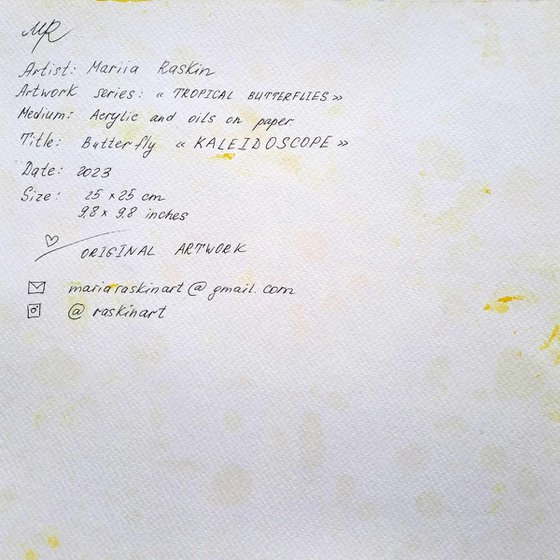 MR
Artist: Mariia Raskin
Artwork series: « TROPICAL BUTTERFLIES »
Medium: Acrylic and oils on paper
Title: Butterfly « KALEIDOSCOPE »
Date: 2023
Size: 25 x 25 cm
9,8 x 9.8 inches
ORIGINAL ARTWORK
mariaraskinart@gmail.com
@raskinart